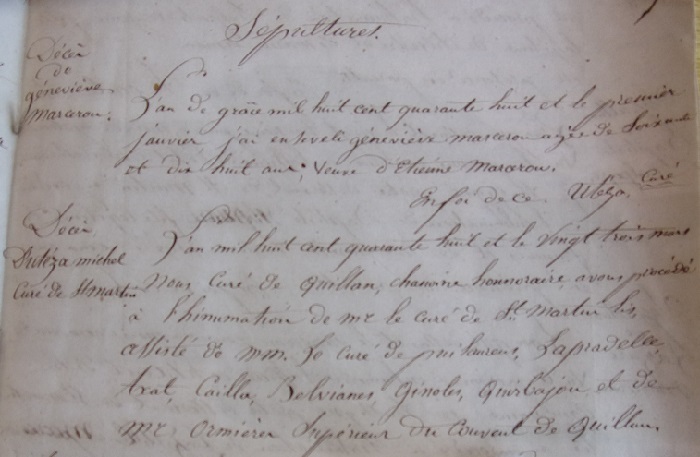 Sépultures.
Décès
de
géneviève
Marceron.
L'an de grâce mil huit cent quarante huit et le premier
janvier, j'ai enseveli géneviève marceron agée de soixante
et dix huit ans, veuve d'Etienne Marceron.
En foi de ce curé
Décès
michel
Curé de St martin
L'an mil huit cent quarante huit et le vingt trois mars
Nous Curé de Quillan, chanoine honnoraire avons procédé
à l'hinumation de mr le curé de St Martin lis,
assisté de mm. le curé de puilaurens, Lapradelle
axat, Cailla, Belvianes, Ginoles, Quirbajou et de
mr Ormières Supérieur du Couvent de Quillan.